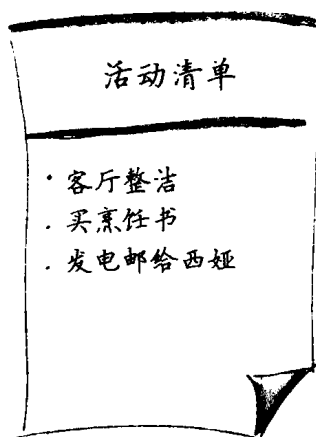 活动清单
· 客厅整洁
· 买烹饪书
· 发电邮给西娅